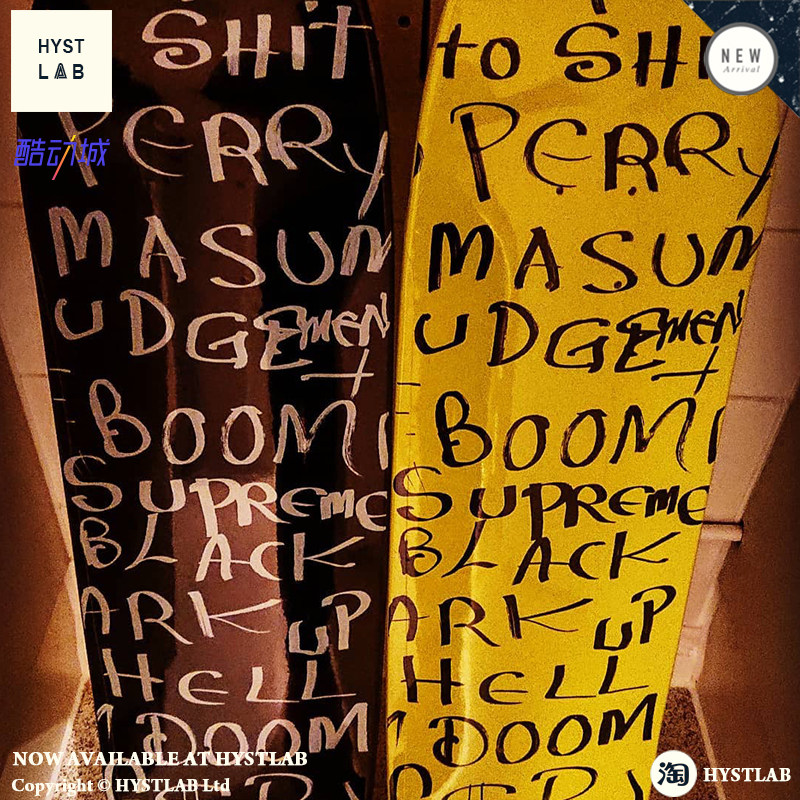 HYST
LAB
酷动城
NEW
Arrival
SHit
PERRY
MASUM
UDGEMENT
BOOM
SUPREME
BLACK
ARK UP
HELL
DOOM
to SHI
PERRY
MASUM
UDGEMENT
BOOM
SUPREME
BLACK
ARK UP
HELL
DOOM
NOW AVAILABLE AT HYSTLAB
Copyright © HYSTLAB Ltd
淘 HYSTLAB